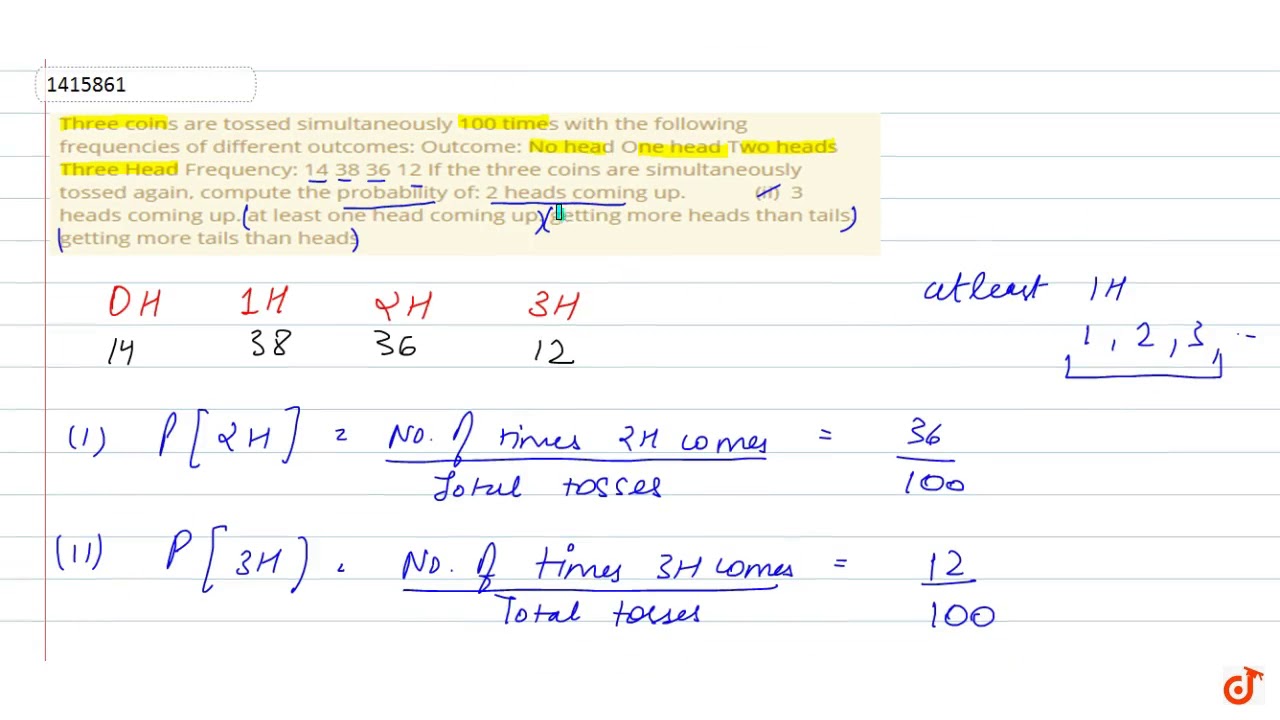 1415861
Three coins are tossed simultaneously 100 times with the following
frequencies of different outcomes: Outcome: No head One head Two heads
Three Head Frequency: 14 38 36 12 If the three coins are simultaneously
tossed again, compute the probability of: 2 heads coming up. (ii) 3
heads coming up. at least one head coming up. getting more heads than tails
getting more tails than heads
0H 1H 2H 3H
14 38 36 12
atleast 1H
1, 2, 3, --
(I) P[2H] = No. of times 2H comes = 36
Total tosses 100
(II) P[3H] = No. of times 3H comes = 12
Total tosses 100